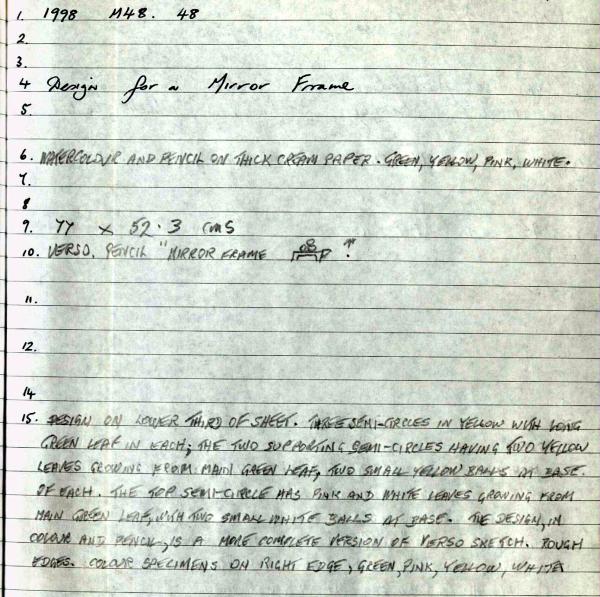 1. 1998 M48. 48
2.
3.
4 Design for a Mirror Frame
5.
6. WATERCOLOUR AND PENCIL ON THICK CREAM PAPER. GREEN, YELLOW, PINK, WHITE.
7.
8
9. 77 x 52.3 cms
10. VERSO. PENCIL "MIRROR FRAME
11.
12.
14
15. DESIGN ON LOWER THIRD OF SHEET. THREE SEMI-CIRCLES IN YELLOW WITH LONG
GREEN LEAF IN EACH; THE TWO SUPPORTING SEMI-CIRCLES HAVING TWO YELLOW
LEAVES GROWING FROM MAIN GREEN LEAF, TWO SMALL YELLOW BALLS AT BASE.
OF EACH. THE TOP SEMI-CIRCLE HAS PINK AND WHITE LEAVES GROWING FROM
MAIN GREEN LEAF, WITH TWO SMALL WHITE BALLS AT BASE. THE DESIGN, IN
COLOUR AND PENCIL, IS A MORE COMPLETE VERSION OF VERSO SKETCH. ROUGH
EDGES. COLOUR SPECIMENS ON RIGHT EDGE, GREEN, PINK, YELLOW, WHITE